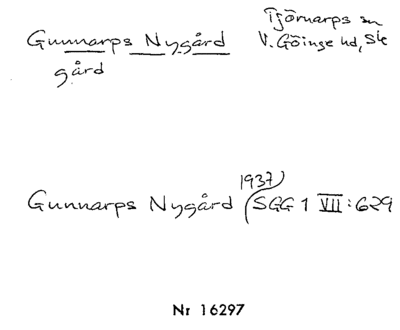 Gunnarps Nygård
gård
Tjörnarps sn
V. Göinge hd, Sk
Gunnarps Nygård (SGG 1 VII:629
1937)
Nr 16297